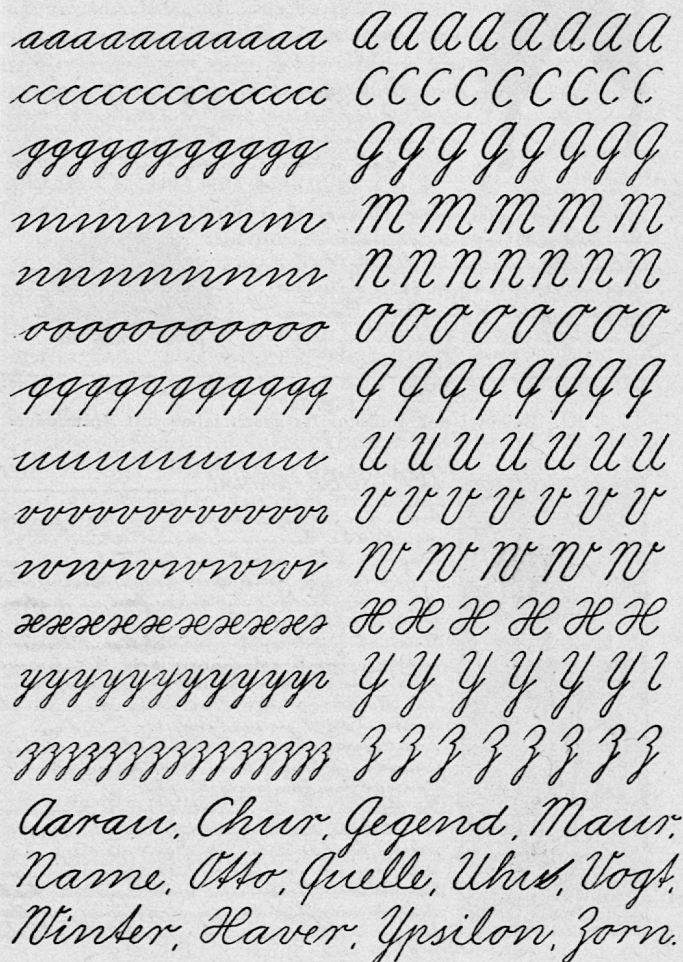 aaaaaaaaaaaa A A A A A A A A
ccccccccccccccc C C C C C C C C C
ggggggggggg G G G G G G G G
mmmmmmm M M M M M
nnnnnnnn N N N N N N N
oooooooooooo O O O O O O O O
qqqqqqqqqqq Q Q Q Q Q Q Q Q
uuuuuuuuu U U U U U U U
vvvvvvvvvvvv V V V V V V V
wwwwwww W W W W W
xxxxxxxxxx X X X X X X
yyyyyyyyyyy Y Y Y Y Y Y
zzzzzzzzzzzzzz Z Z Z Z Z Z Z Z
Aarau, Chur, Gegend, Maur,
Name, Otto, Quelle, Uhu, Vogt,
Winter, Xaver, Ypsilon, Zorn.